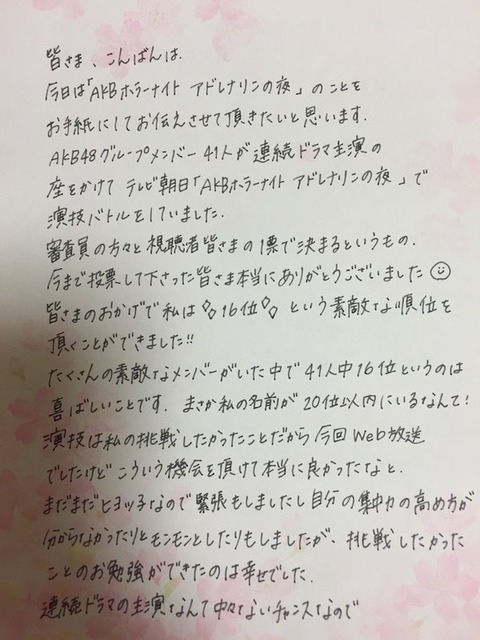 皆さま、こんばんは.
今日は「AKBホラーナイト アドレナリンの夜」のことを
お手紙にしてお伝えさせて頂きたいと思います.
AKB48グループメンバー41人が連続ドラマ主演の
座をかけて テレビ朝日「AKBホラーナイト アドレナリンの夜」で
演技バトルをしていました.
審査員の方々と視聴者皆さまの1票で決まるというもの.
今まで投票して下さった皆さま本当にありがとうございました☺
皆さまのおかげで私は◇。16位◇。という素敵な順位を
頂くことができました!!
たくさんの素敵なメンバーがいた中で41人中16位というのは
喜ばしいことです. まさか私の名前が20位以内にいるなんて!
演技は私の挑戦したかったことだから今回Web放送
でしたけどこういう機会を頂けて本当に良かったなと.
まだまだヒヨッ子なので緊張もしましたし自分の集中力の高め方が
分からなかったりとモンモンとしたりもしましたが、挑戦したかった
ことのお勉強ができたのは幸せでした.
連続ドラマの主演なんて中々ないチャンスなので